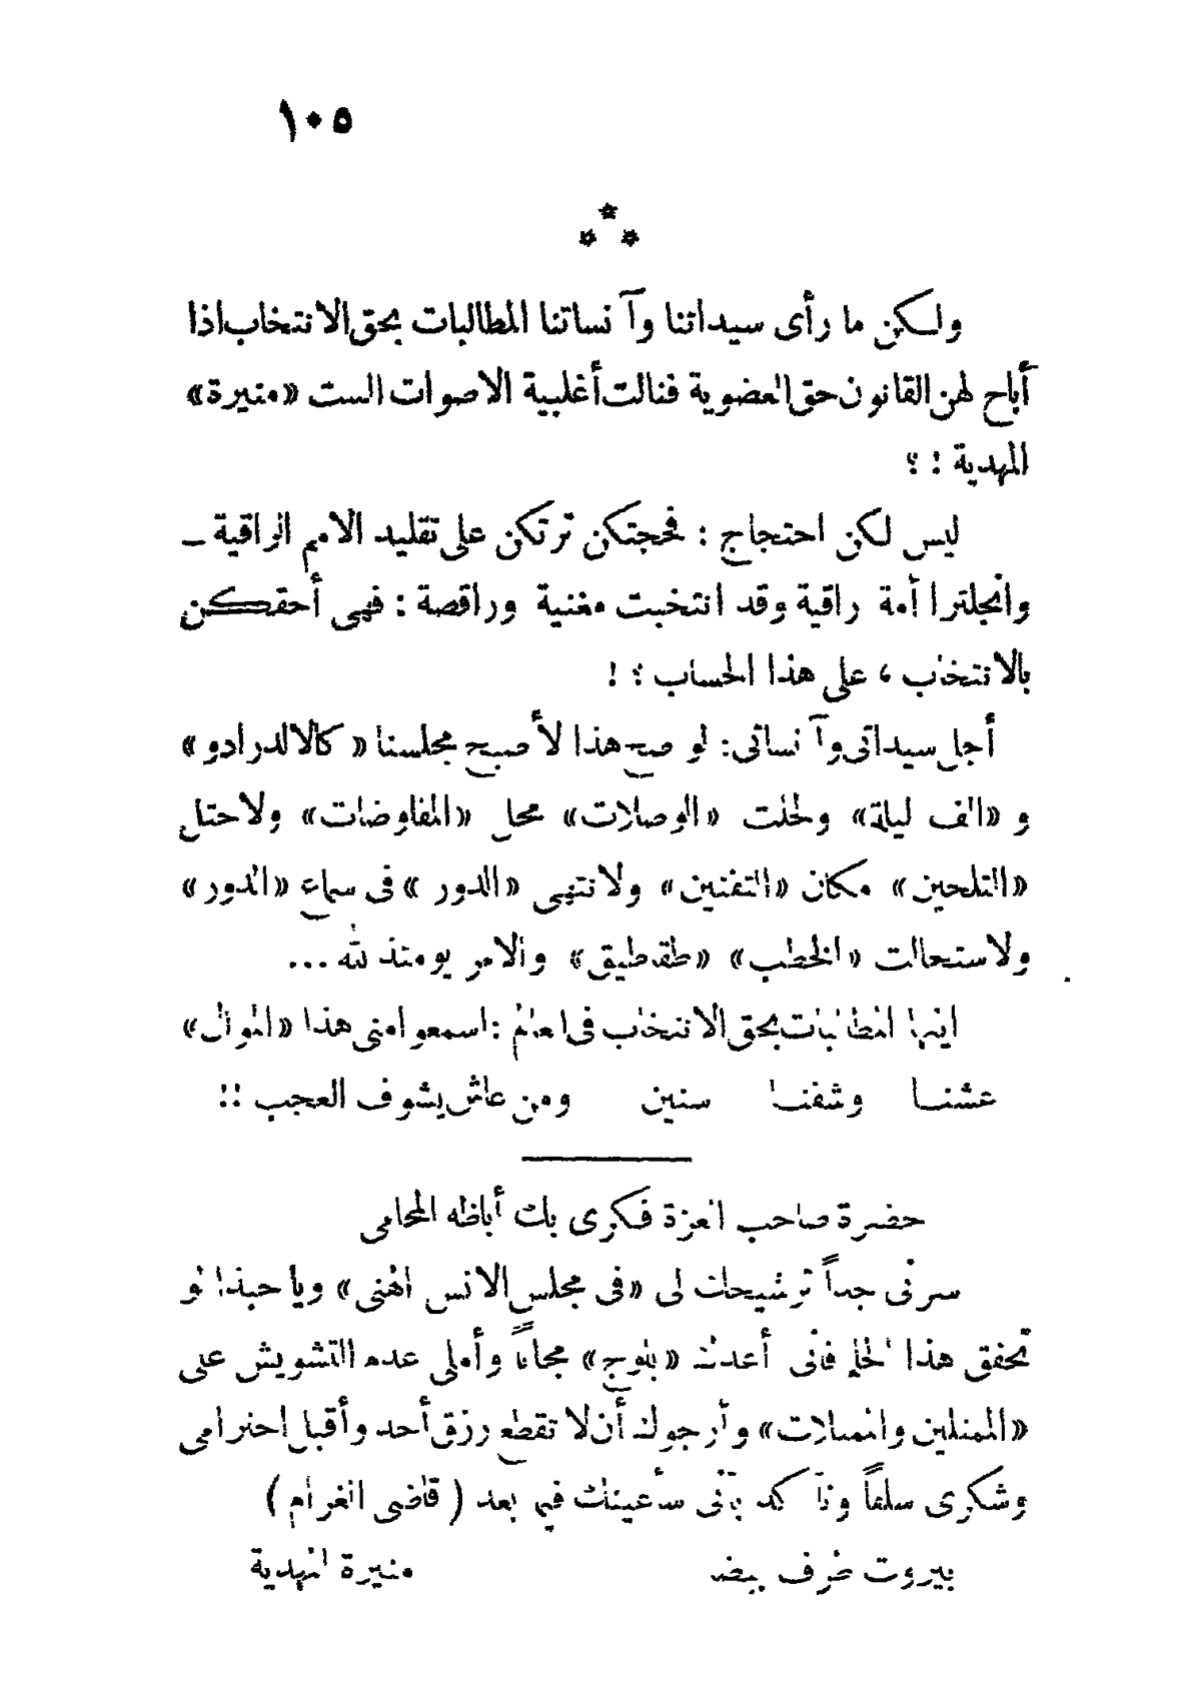 ١٠٥
***
ولكن ما رأى سيداتنا وآنساتنا المطالبات بحق الانتخاب اذا
أباح لهن القانون حق العضوية فنالت أغلبية الاصوات الست «منيرة»
المهدية ! ؟
ليس لكن احتجاج : فحجتكن ترتكن على تقليد الامم الراقية ـ
وانجلترا أمة راقية وقد انتخبت مغنية وراقصة : فهى أحقكن
بالانتخاب ، على هذا الحساب ؟ !
أجل سيداتى وآنساتى: لو صح هذا لأصبح مجلسنا « كالالدرادو »
و «الف ليلة» ولحلت «الوصلات» محل «المفاوضات» ولاحتل
«التلحين» مكان «التفنين» ولانتهى «الدور » فى سماع «الدور»
ولاستحالت «الخطب» «طقطيق» والامر يومئذ لله ...
ايتها المطالبات بحق الانتخاب فى العالم : اسمعوا منى هذا «الموال»
عشنا وشفنا سنين ومن عاش يشوف العجب !!
حضرة صاحب العزة فكرى بك أباظه المحامى
سرنى جداً ترشيحك لى «فى مجلس الانس الهنى» ويا حبذا لو
تحقق هذا الحلم فانى أعدك «بلوج» مجاناً وأملى عدم التشويش على
«الممثلين والممثلات» وأرجوك أن لا تقطع رزق أحد وأقبل احترامى
وشكرى سلفاً وتأكد بأنى سأعينك فيما بعد ( قاضى الغرام )
بيروت طرف منيرة المهدية